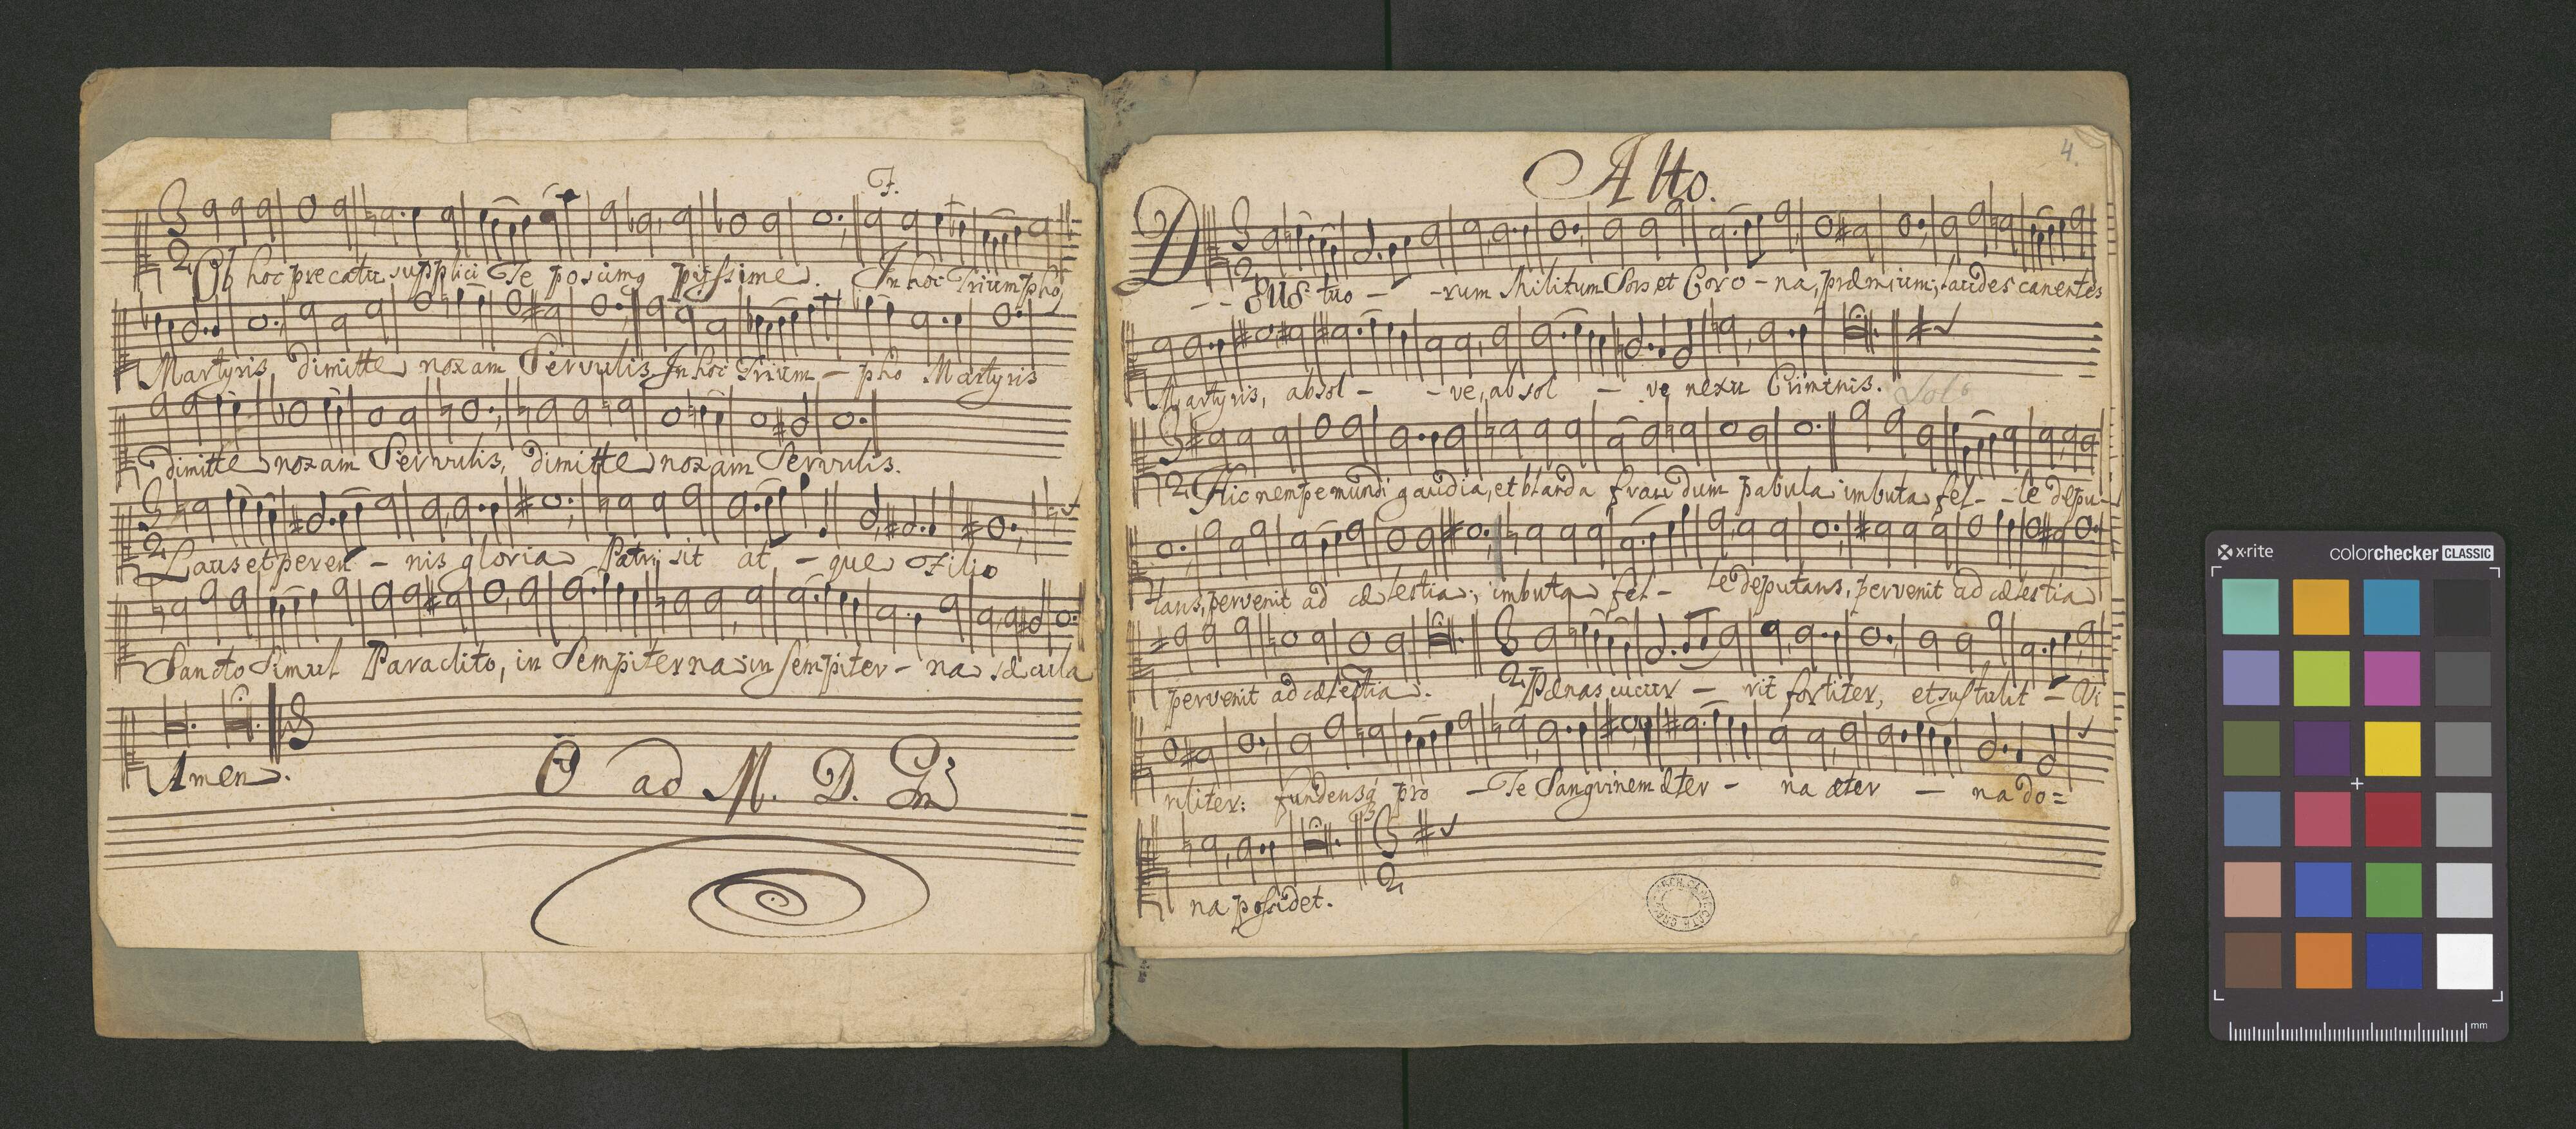 F.
3
2
Ob hoc precatu supplici Te poscimg pijssime. In hoc Triumpho
Martyris, dimitte noxam Servulis. In hoc Trium - pho Martyris
dimitte noxam Servulis, dimitte noxam Servulis.
3
2
Laus et peren - nis gloria Patri sit at - que Filio
Sancto Simul Paraclito, in Sempiterna in sempiter - na sæcula
Amen.
O ad M. D. G.
4.
Alto.
3
2
D - - eus tuo - - rum Militum Sors et Coro - na, præmium; laudes canentes
Martyris, absol - - ve, absol - ve nexu Criminis. Solo
3
2
Hic nempe mundi gaudia, et blanda fraudum pabula imbuta fel - - le depu-
tans, pervenit ad cælestia; imbuta fel - le deputans, pervenit ad cælestia
pervenit ad cælestia.
3
2
Pænas cucur - rit fortiter, et sustulit - Vi
riliter: fundensq pro - Te Sangvinem æter - na æter - na do=
na possidet.
3
2
x-rite
colorchecker CLASSIC
mm